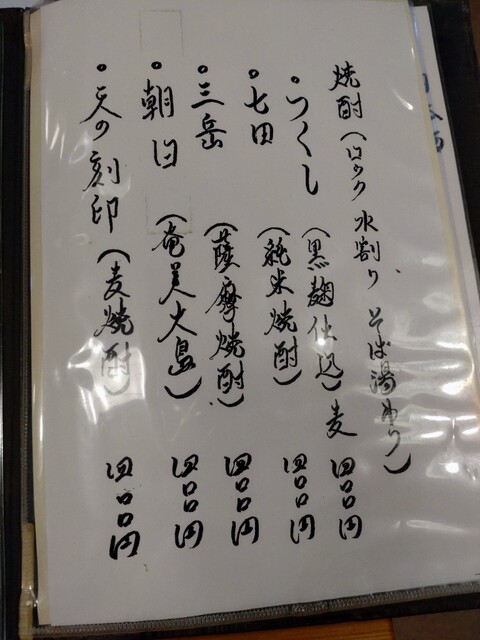 焼酎（ロック 水割り、そば湯わり）
つくし（黒麹仕込）麦 四〇〇円
七田（純米焼酎） 四〇〇円
三岳（薩摩焼酎） 四〇〇円
朝日（奄美大島） 四〇〇円
天の刻印（麦焼酎） 四〇〇円